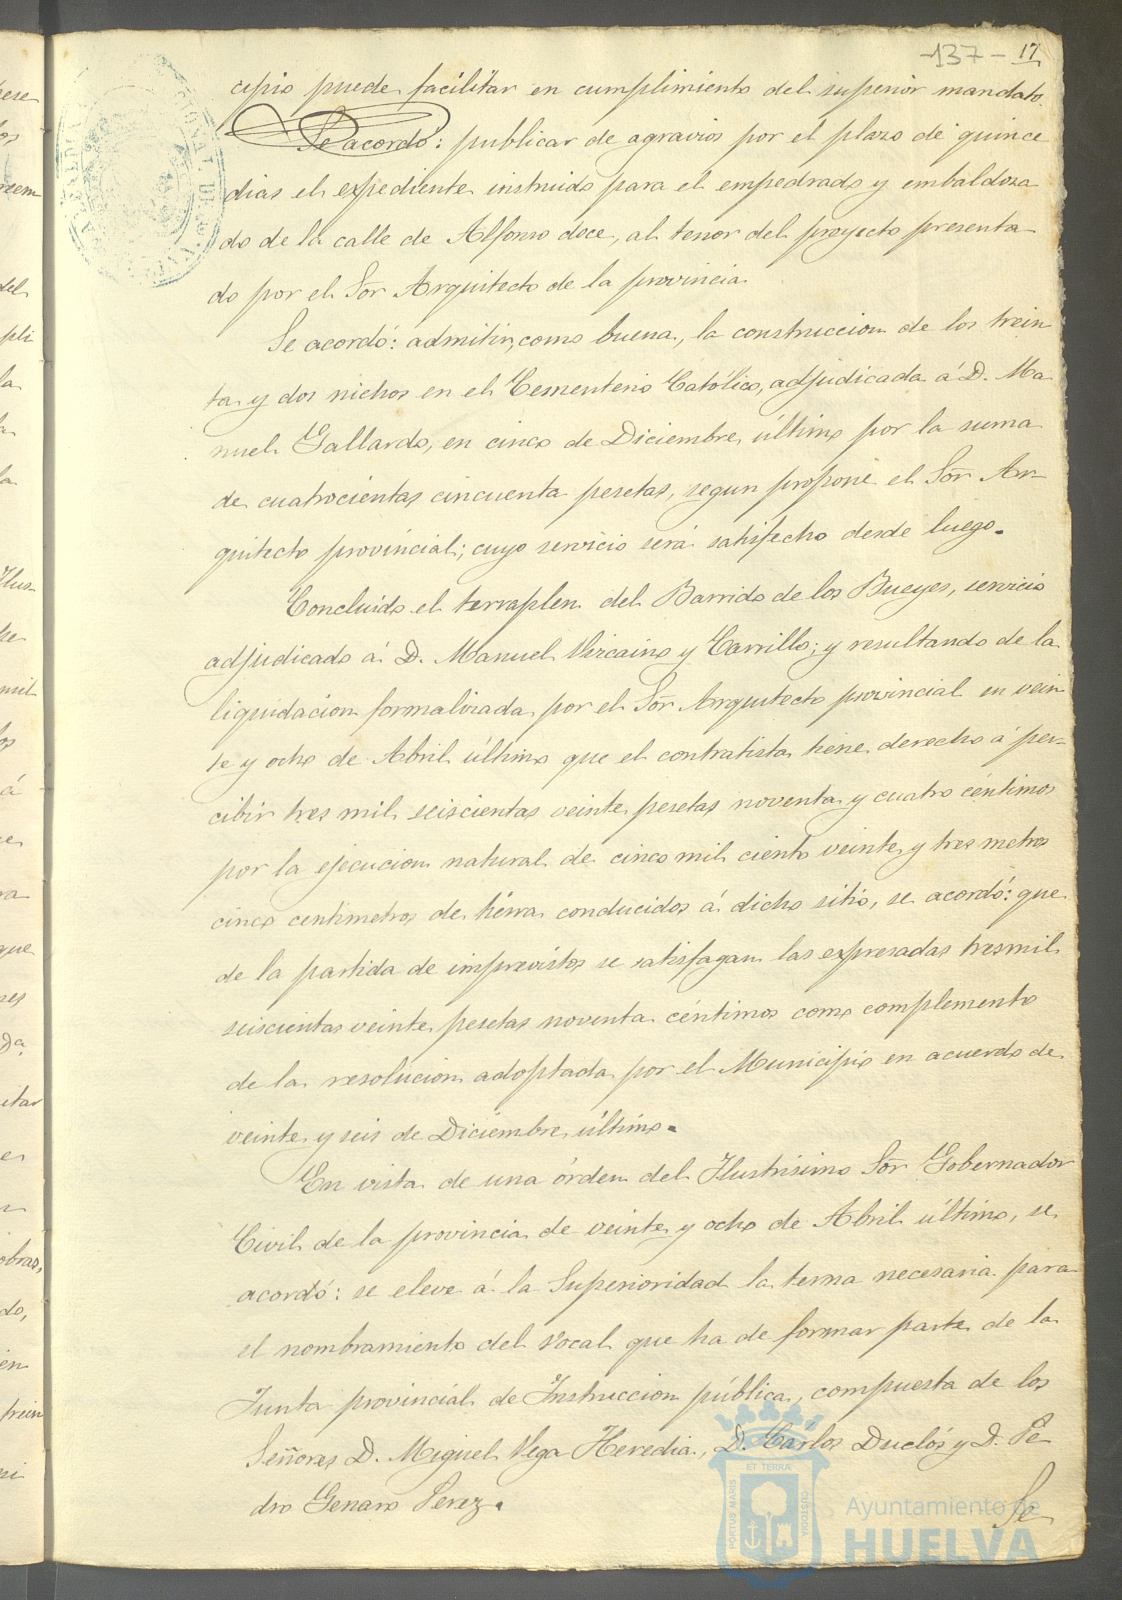 -137- 17
cipio puede facilitar en cumplimiento del superior mandato.
Se acordó: publicar de agravios por el plazo de quince
dias el expediente instruido para el empedrado y embaldosa
do de la calle de Alfonso doce, al tenor del proyecto presenta
do por el Sor Arquitecto de la provincia.
Se acordó: admitir, como buena, la construccion de los trein
ta y dos nichos en el Cementerio Católico, adjudicada á D. Ma
nuel Gallardo, en cinco de Diciembre último por la suma
de cuatrocientas cincuenta pesetas, segun propone el Sor Ar-
quitecto provincial; cuyo servicio será satisfecho desde luego.
Concluido el terraplen del Barrido de los Bueyes, servicio
adjudicado á D. Manuel Vizcaino y Carrillo; y resultando de la
liquidacion formalizada por el Sor Arquitecto provincial en vein
te y ocho de Abril último que el contratista tiene derecho á per-
cibir tres mil seiscientas veinte pesetas noventa y cuatro céntimos
por la ejecucion natural de cinco mil ciento veinte y tres metros
cinco centimetros de tierra conducidos á dicho sitio, se acordó: que
de la partida de imprevistos se satisfagan las expresadas tresmil
seiscientas veinte pesetas noventa céntimos como complemento
de la resolucion adoptada por el Municipio en acuerdo de
veinte y seis de Diciembre último.
En vista de una órden del Ilustrisimo Sor Gobernador
Civil de la provincia de veinte y ocho de Abril último, se
acordó: se eleve á la Superioridad la terna necesaria para
el nombramiento del vocal que ha de formar parte de la
Junta provincial de Instruccion pública, compuesta de los
Señores D. Miguel Vega Heredia, D. Cárlos Duclós y D. Pe
dro Genaro Perez.
Se
PORTUS MARIS ET TERRÆ CUSTODIA
Ayuntamiento de
HUELVA